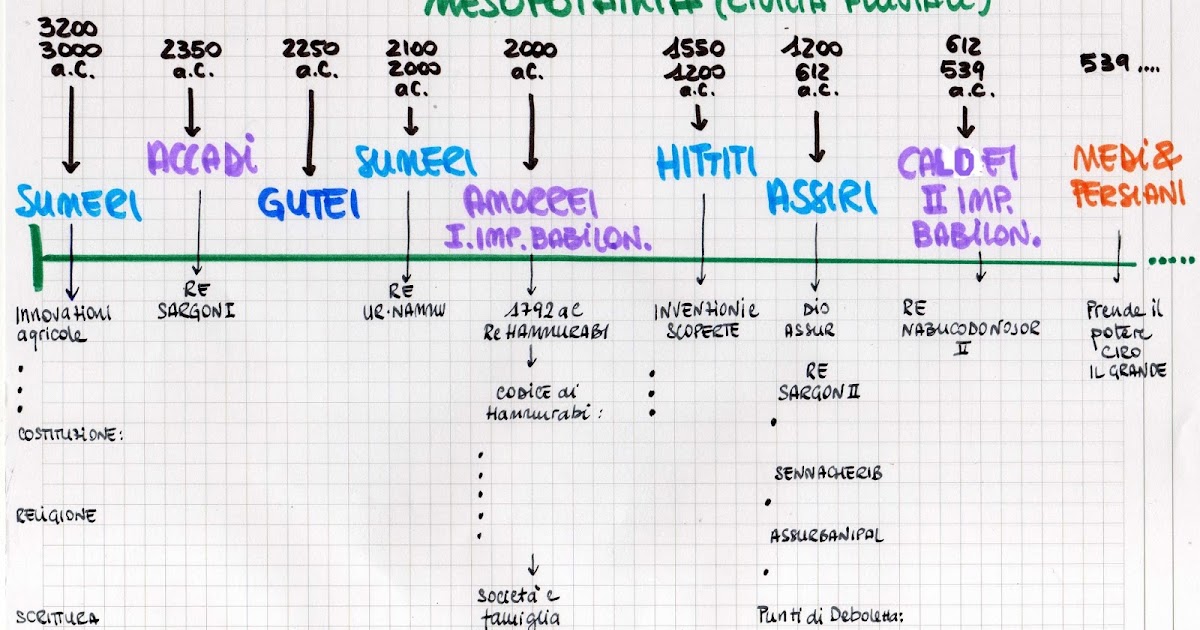 MESOPOTAMIA (CIVILTÀ FLUVIALE)
3200
3000
a.C.
2350
a.C.
2250
a.C.
2100
2000
a.C.
2000
a.C.
1550
1200
a.C.
1200
612
a.C.
612
539
a.C.
539 ....
SUMERI
ACCADI
GUTEI
SUMERI
AMORREI
I. IMP. BABILON.
HITTITI
ASSIRI
CALDEI
II IMP.
BABILON.
MEDI &
PERSIANI
Innovazioni
agricole
COSTITUZIONE:
RELIGIONE
SCRITTURA
RE
SARGON I
RE
UR-NAMMU
1792 a C
Re HAMMURABI
CODICE di
Hammurabi:
Società e
famiglia
INVENZIONI e
SCOPERTE
DIO
ASSUR
RE
SARGON II
SENNACHERIB
ASSURBANIPAL
Punti di Debolezza:
RE
NABUCODONOSOR
II
Prende il
potere
CIRO
IL GRANDE